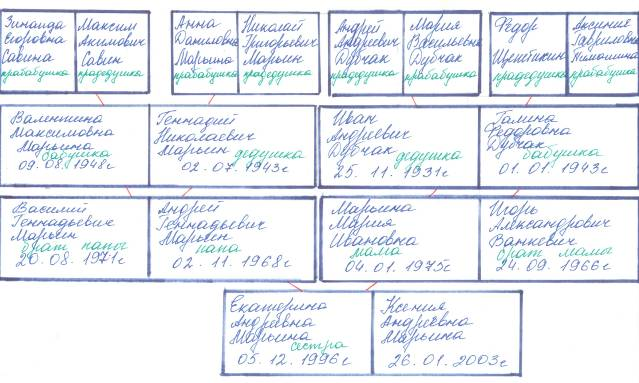 Зинаида
Егоровна
Савина
прабабушка
Максим
Акимович
Савин
прадедушка
Анна
Даниловна
Марьина
прабабушка
Николай
Григорьевич
Марьин
прадедушка
Андрей
Андреевич
Дубчак
прадедушка
Мария
Васильевна
Дубчак
прабабушка
Федор
Щетинкин
прадедушка
Аксиния
Гавриловна
прабабушка
Валентина
Максимовна
Марьина
бабушка
09.08.1948г
Геннадий
Николаевич
Марьин дедушка
02.07.1943г
Иван
Андреевич
Дубчак
дедушка
25.11.1931г
Галина
Федоровна
Дубчак
бабушка
01.01.1943г
Василий
Геннадьевич
Марьин
брат папы
20.08.1971г
Андрей
Геннадьевич
Марьин
папа
02.11.1968г
Марьина
Мария
Ивановна
мама
04.01.1975г
Игорь
Александрович
Ванкевич
брат мамы
24.09.1966г
Екатерина
Андреевна
Марьина
сестра
05.12.1996г
Ксения
Андреевна
Марьина
26.01.2003г